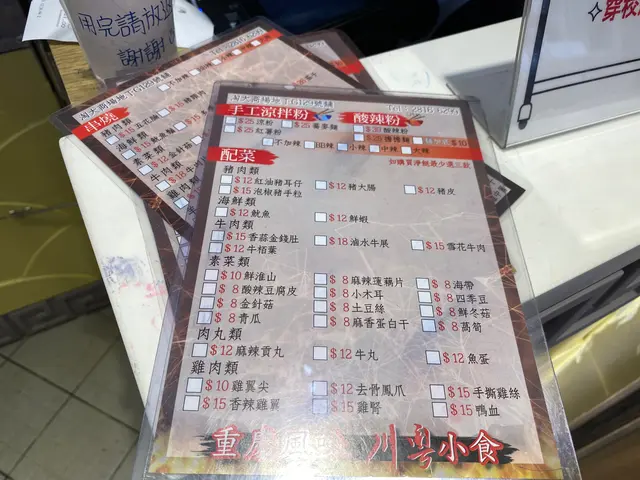 用完請放
謝謝
淘大商場地下G129號舖
串燒
豬肉類
海鮮類
素菜類
不加辣
淘大商場地下G129號舖
手工涼拌粉
酸辣粉
$25 涼粉
$25 蕎麥麵
$30 酸辣粉
$25 紅薯粉
不加辣
BB辣
小辣
中辣
大辣
配菜
如購買淨餸最少選三款
豬肉類
$12 紅油豬耳仔
$12 豬大腸
$12 豬皮
$15 泡椒豬手粒
海鮮類
$12 魷魚
$12 鮮蝦
牛肉類
$15 香蒜金錢肚
$18 滷水牛展
$15 雪花牛肉
$12 牛栢葉
素菜類
$10 鮮淮山
$8 麻辣蓮藕片
$8 海帶
$8 酸辣豆腐皮
$8 小木耳
$8 四季豆
$8 金針菇
$8 土豆絲
$8 鮮冬菇
$8 青瓜
$8 麻香蛋白干
$8 萵筍
肉丸類
$12 麻辣貢丸
$12 牛丸
$12 魚蛋
雞肉類
$10 雞翼尖
$12 去骨鳳爪
$15 手撕雞絲
$15 香辣雞翼
$15 雞腎
$15 鴨血
重慶風味 川粵小食